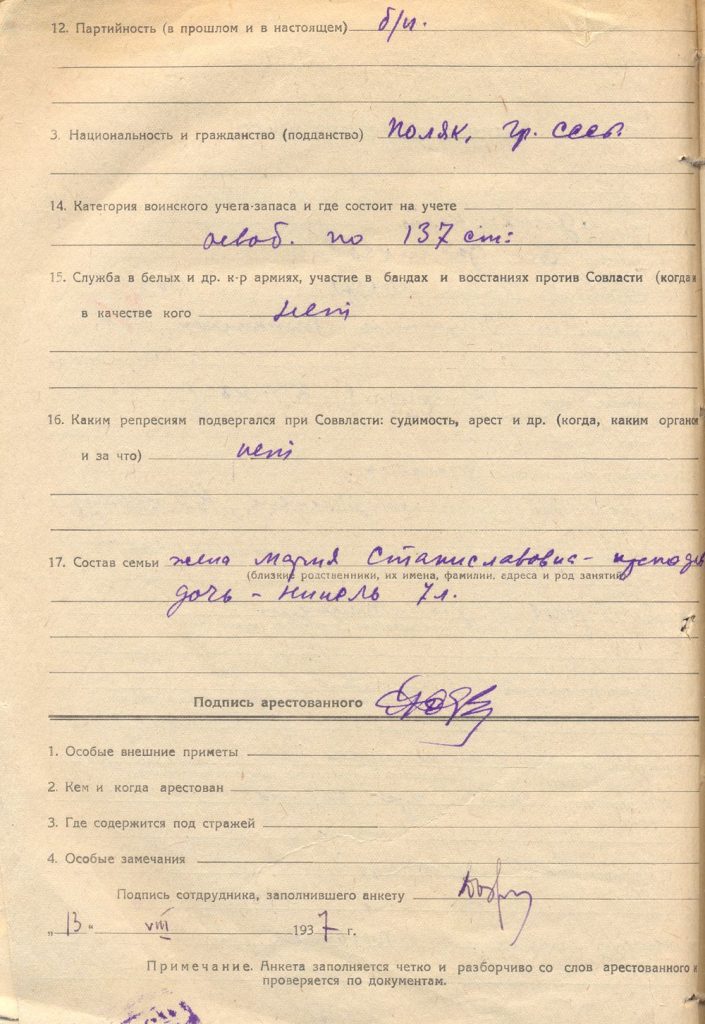 12. Партийность (в прошлом и в настоящем) б/п.
3. Национальность и гражданство (подданство) поляк, гр. СССР.
14. Категория воинского учета-запаса и где состоит на учете
освоб. по 137 ст:
15. Служба в белых и др. к-р армиях, участие в бандах и восстаниях против Совласти (когда и
в качестве кого нет
16. Каким репресиям подвергался при Соввласти: судимость, арест и др. (когда, каким органом
и за что) нет
17. Состав семьи жена Мария Станиславовна - преподав
(близкие родственники, их имена, фамилии, адреса и род занятий)
дочь - Нинель 7 л.
Подпись арестованного
1. Особые внешние приметы
2. Кем и когда арестован
3. Где содержится под стражей
4. Особые замечания
Подпись сотрудника, заполнившего анкету
„13“ VIII 1937 г.
Примечание. Анкета заполняется четко и разборчиво со слов арестованного и
проверяется по документам.